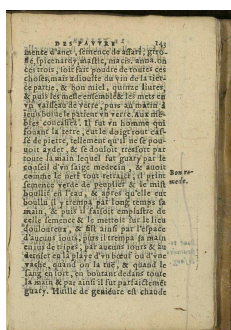 DES PAVVRES 143
mente d'anet, semence de assari, giro-
fle, spicenardy, mastic, macis, anna. on
ces trois, soit fait poudre de toutes ces
choses, mais du vin de la tier-
ce partie, & bon miel, quinze liures,
& puis les mesle ensemble & les mets en
vn vaisseau de verre, puis au matin à
ieun boiue le patient vn verre. Aux mé-
bles Il fut vn homme qui
fouant la terre, eut le doigt tout cas-
sé de pierre, tellement qu'il ne se pou-
uoit ayder, & se douloit tresfort par
toute la main lequel fut guary par le
conseil d'vn saige medecin, & auoit
comme le nerf tout retrait, il print
semence verde de peuplier & se mist
bouillir en l'eau, & apres qu'elle eut
boullu il y trempa par long temps sa
main, & puis il faisoit emplastre de
celle semence & le mettoit sur le lieu
douloureux, & fist ainsi par l'espace
d'aucuns iours, puis il trempa sa main
en ius de tripes, par aucuns iours & au
dernier en la playe d'vn bœuf ou d'vne
vache, quand on la tue, & quand le
sang en sort, en boutant dedans toute
la main & par ainsi il fut parfaictemét
guary. Huille de genieure est chaude
Bon re-
mede.